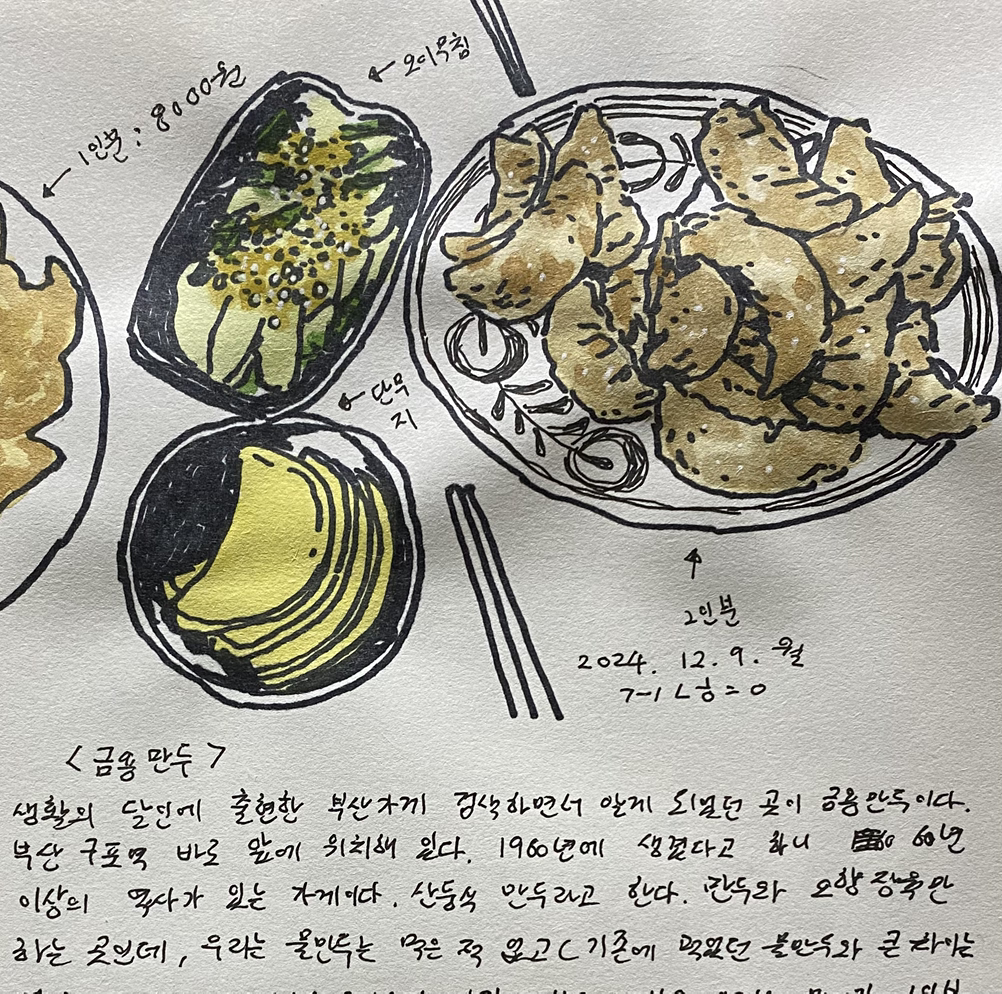 1인분 : 8000원
오이무침
단무
지
2인분
2024. 12. 9. 월
<금용만두>
생활의 달인에 출현한 부산가게 검색하면서 알게 되었던 곳이 금용만두이다.
부산 구포역 바로 앞에 위치해 있다. 1960년에 생겼다고 하니 60년
이상의 역사가 있는 가게이다. 산둥식 만두라고 한다. 만두와 오향장육만
하는 곳인데, 우리는 물만두는 먹은 적 있고 ( 기존에 먹었던 물만두와 큰 차이는